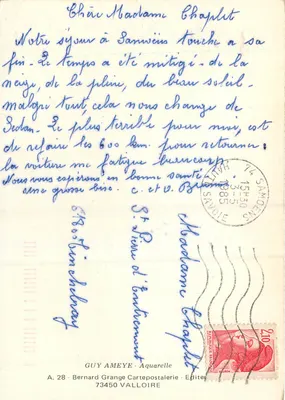 Chère Madame Chaplet
Notre séjour à Samoëns touche a sa
fin. Le temps a été mitigé - de la
neige, de la pluie, du beau soleil -
malgré tout cela nous change de
Sedan. Le plus terrible pour moi, est
de refaire les 600 km. pour retourner
la voiture me fatigue beaucoup.
Nous vous espérons en bonne santé
une grosse bise. C. et V.
Madame Chaplet
St Pierre d'Entremont
61800 Tinchebray
74 SAMOENS
15H30
3-5
1985
HAUTE SAVOIE
2,10
GUY AMEYE - Aquarelle
A. 28 - Bernard Grange Cartepostalerie - Editeur
73450 VALLOIRE